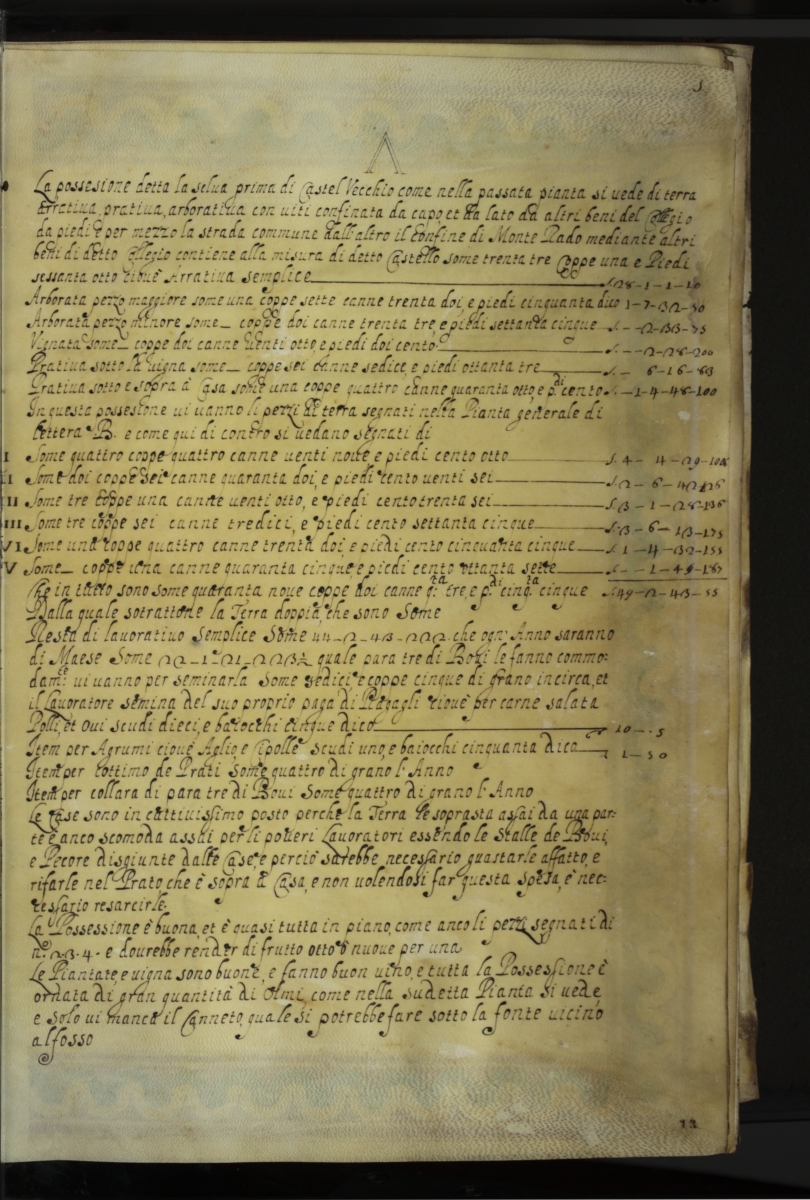 A
La possesione detta la selua prima di Castel Vecchio come nella passata pianta si uede di terra
arratiua, pratiua, arboratiua con uiti confinata da capo, et da lato da altri beni del Collegio
da piedi e per mezzo la strada commune dall'altro il confine di Monte Rado mediante altri
beni di detto Collegio contiene alla misura di detto Castello some trenta tre Coppe una e Piedi
sessanta otto cioue Arratiua semplice
Arborata pezzo maggiore some una coppe sette canne trenta doi, e piedi cinquanta duo 1-7-32-50
Arborata pezzo minore some_ coppe doi canne trenta tre, e piedi settanta cinque s.- -2-33-75
Vignata some_ coppe doi canne uenti otto, e piedi doi cento s.- -2-28-200
Pratiua sotto la uigna some_ coppe sei canne sedice, e piedi ottanta tre s.- 6-16-83
Pratiua sotto e sopra a Casa some una coppe quattro canne quaranta otto, e p.di cento s.-1-4-48-100
In questa possesione ui uanno li pezzi di terra segnati nella Pianta generale di
lettera B. e come qui di contro si uedano segnati di
I Some quattro coppe quattro canne uenti noue, e piedi cento otto s. 4- 4-29-108
II Some doi coppe sei canne quaranta doi, e piedi cento uenti sei s.2-6-42-126
III Some tre coppe una canne uenti otto, e piedi cento trenta sei s.3-1-28-136
IIII Some tre coppe sei canne tredici, e piedi cento settanta cinque s.3-6-13-175
VI Some una coppe quattro canne trenta doi, e piedi cento cinquanta cinque s.1-4-32-155
V Some_ coppe una canne quaranta cinque, e piedi cento ottanta sette s.- -1-45-187
Che in tutto sono some quaranta noue coppe doi canne q.ta tre, e p.di cinq.ta cinque s.49-2-43-55
Dalla quale sotrattone la Terra doppia, che sono Some
Resta di lauoratiuo Semplice Some 44-2-43-222 che ogn' Anno saranno
di Maese Some quale para tre di Boui le fanno commo-
dam.te ui uanno per seminarla Some sedici e coppe cinque di grano incirca, et
il Lauoratore semina del suo proprio paga di Pezzagli cioue per carne salata
Polli, et Oui scudi dieci, e baiocchi cinque dico 10-.5
Item per Agrumi cioue Aglio, e Cipolle scudi uno, e baiocchi cinquanta dico 1-50
Item per cottimo de Prati Some quattro di grano l'Anno
Item per collara di para tre di Boui Some quattro di grano l'Anno
Le Case sono in cattiuissimo posto perche la Terra le soprasta assai da una par-
te e anco scomoda assai per li poueri Lauoratori essendo le Stalle de Boui,
e Pecore disgiunte dalle Case, e percio sarebbe necessario guastarle affatto, e
rifarle nel Prato che è sopra a Casa, e non uolendosi far questa Spesa, è nec-
cessario resarcirle
La Possessione è buona, et è quasi tutta in piano, come anco li pezzi segnati di
n.o 2.3.4. e dourebbe render di frutto otto o nuoue per una
Le Piantate, e uigna sono buone, e fanno buon uino, e tutta la Possessione è
ornata di gran quantità di Olmi, come nella sudetta Pianta si uede,
e Solo ui manca il Canneto, quale si potrebbe fare sotto la fonte uicino
al fosso